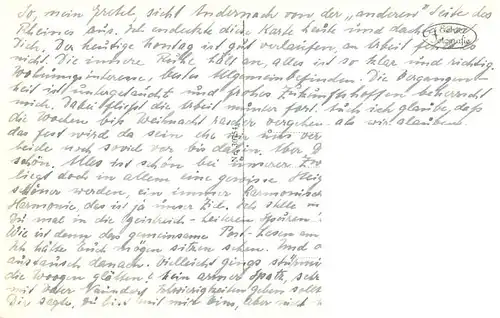 So, mein Gretel, sieht Andernach von der „anderen" Seite des
Rheines aus. Ich entdeckte diese Karte heute und dachte an
Dich. Der heutige Montag ist gut verlaufen, an Arbeit fehlt
nicht. Die innere Ruhe hält an, alles ist so klar und richtig.
bestes Allgemeinbefinden. Die Vergangen-
heit ist untergetaucht und frohes Zukunftshoffen beherrscht
mich. Dabei fließt die Arbeit munter fort. Auch ich glaube, daß
die Wochen bis Weihnacht rascher vergehen als wir glauben.
das Fest wird da sein ehe wir uns ver
beide noch soviel vor bis dahin. Aber
schön. Alles ist schön bei unserer
liegt doch in allem eine gewisse
schöner werden, ein immer harmonisch
Harmonie, das ist ja unser Ziel. Ich stelle
Du mal in die geistreich-heiteren
Wie ist denn das gemeinsame Post-Lesen
Ich hätte Euch mögen sitzen sehen. Und
austausch danach. Vielleicht gings stürmi
die Woogen glätten! Kein armer Spatz,
mit oder Schwierigkeiten geben sollt
Die sagte, Du bist mit mir eins, aber nicht